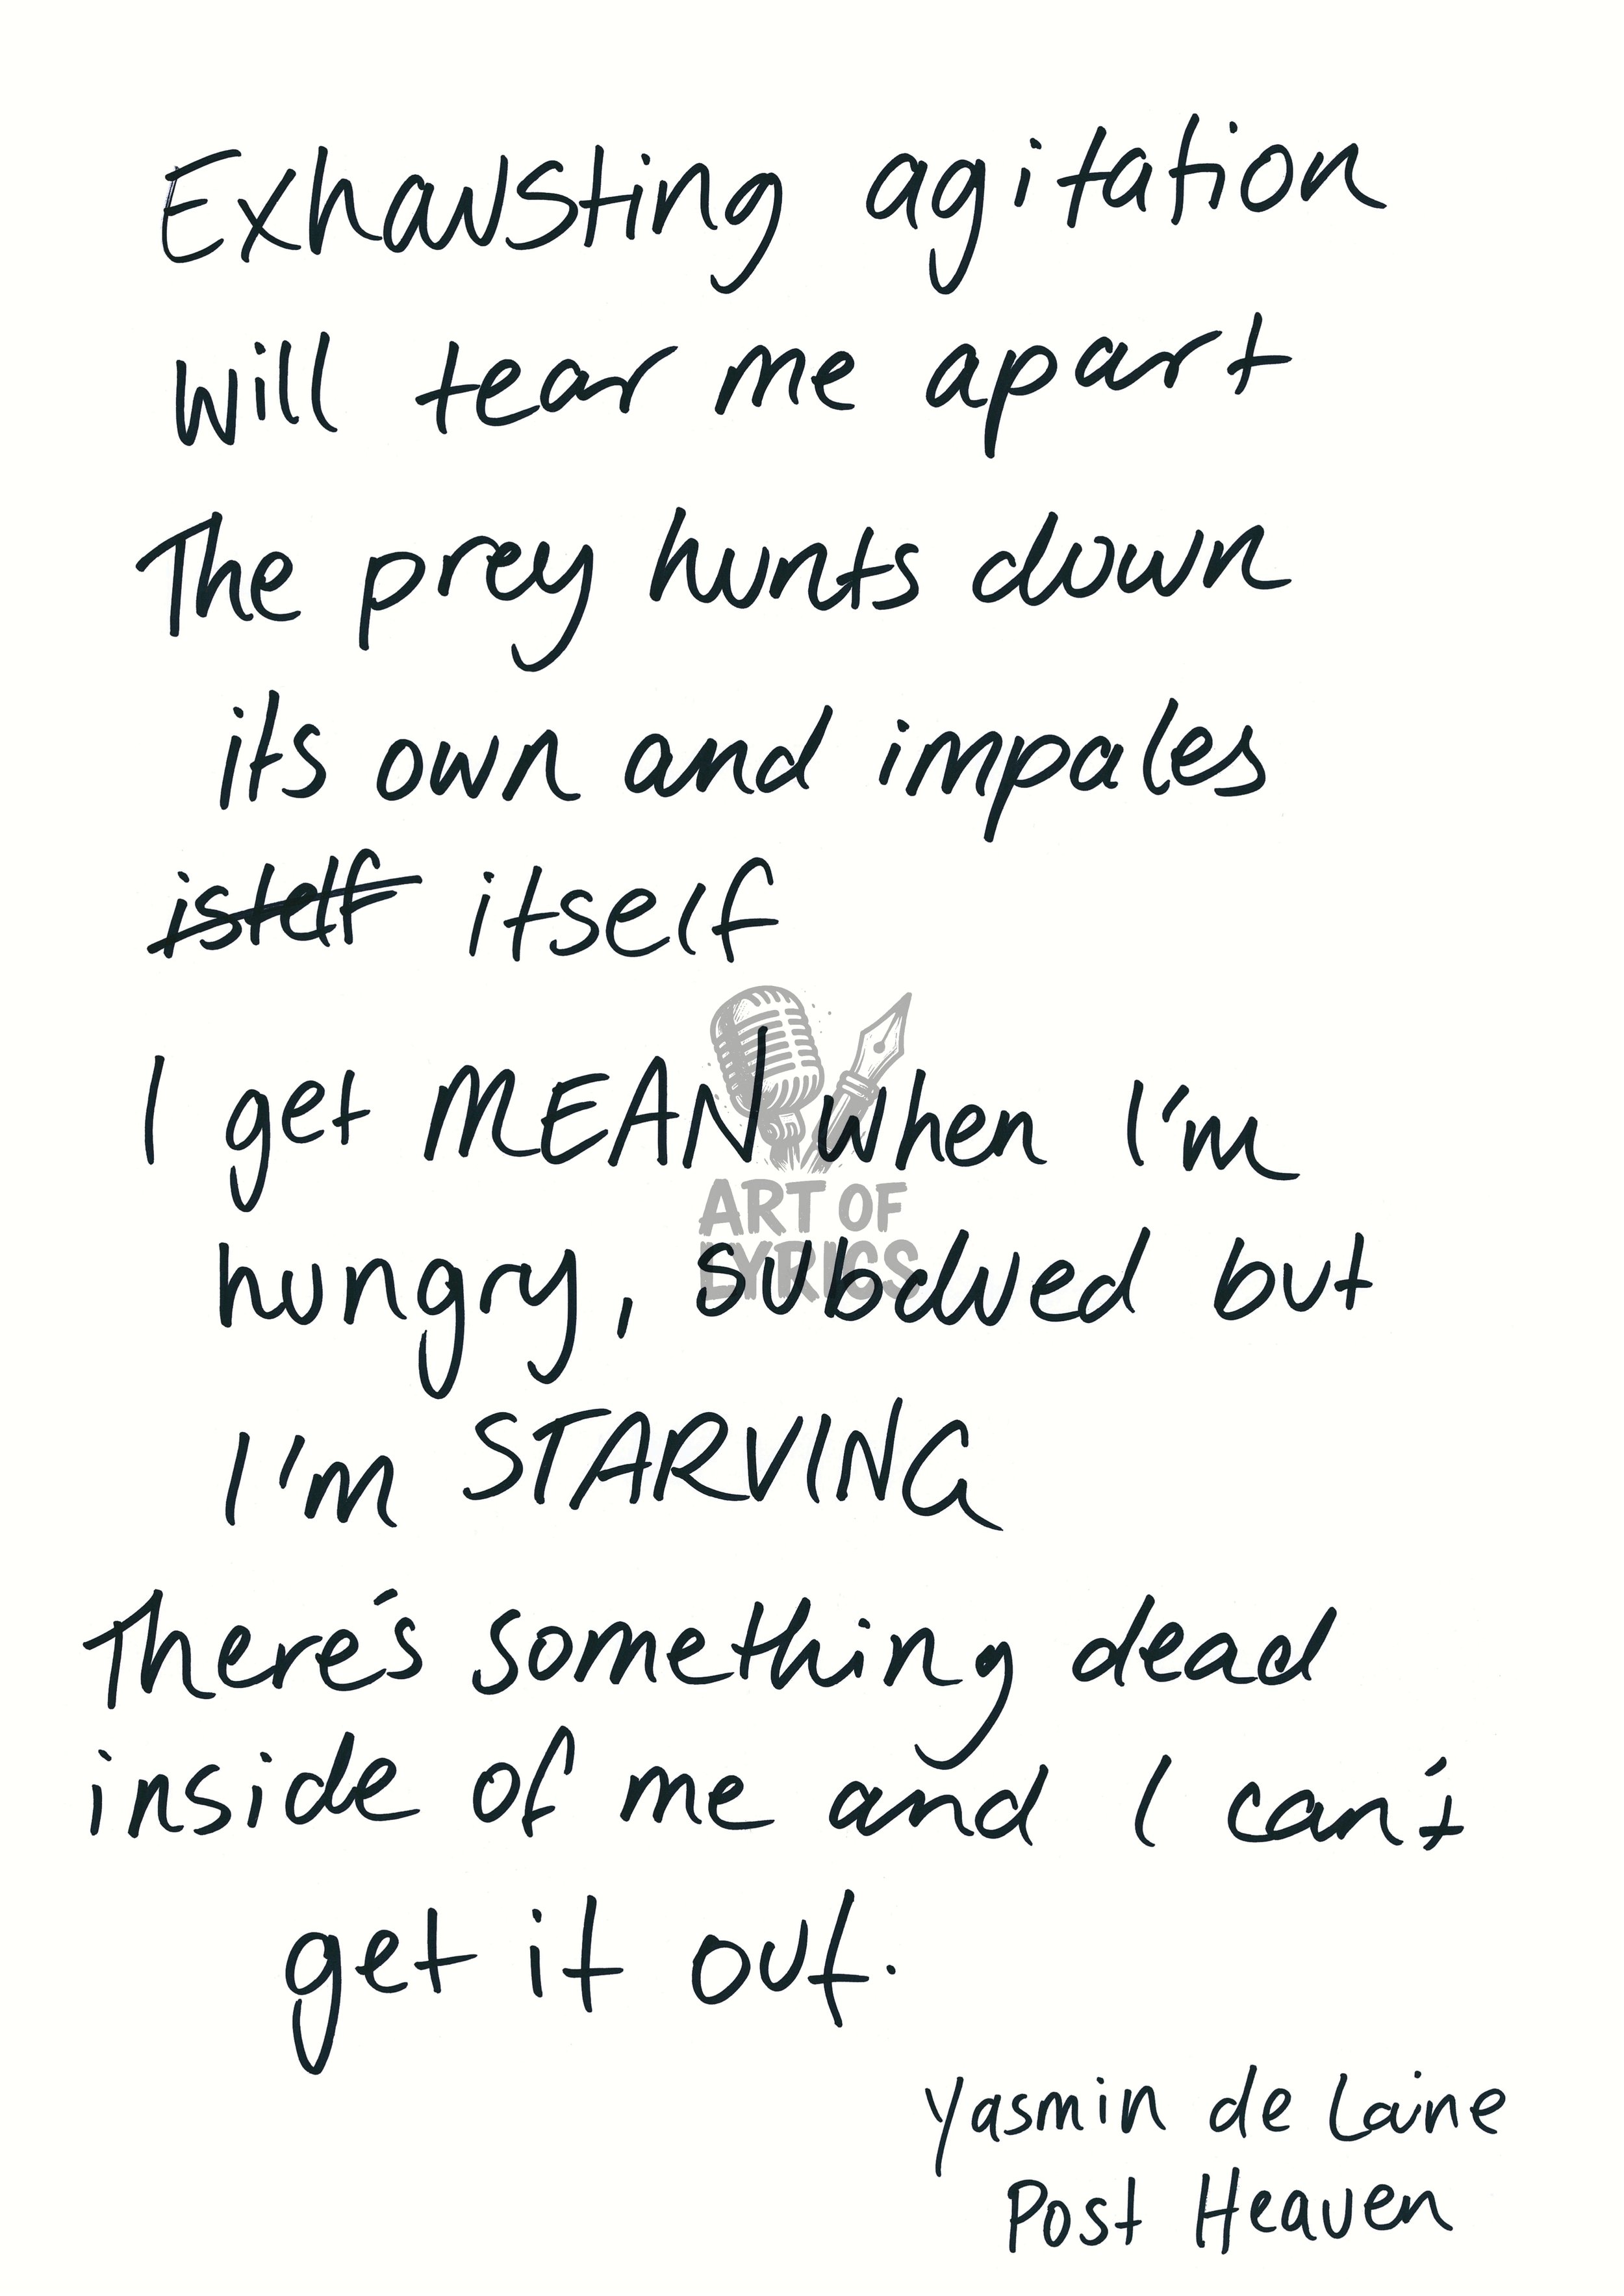 Exhausting agitation
will tear me apart
The prey hunts down
its own and impales
istelf itself
I get MEAN when I'm
hungry, subdued but
I'm STARVING
There's something dead
inside of me and I can't
get it out.
Yasmin de Laine
Post Heaven
ART OF
LYRICS